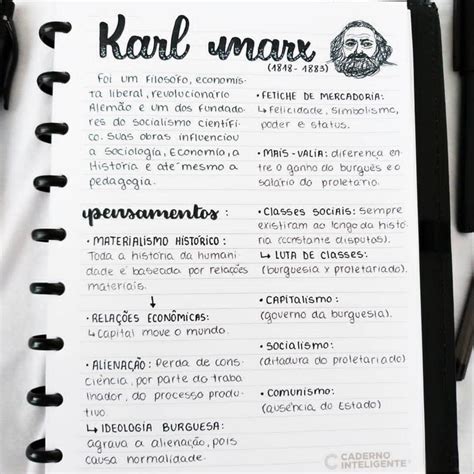 Karl marx
(1818 - 1883)
Foi um filósofo, economis
ta liberal, revolucionário
Alemão e um dos fundado
res do socialismo científi
co. Suas obras influenciou
a Sociologia, Economia, a
História e até mesmo a
pedagogia.
pensamentos:
• MATERIALISMO HISTÓRICO:
Toda a história da humani
dade é baseada por relações
materiais.
↓
• RELAÇÕES ECONÔMICAS:
↳ Capital move o mundo.
• ALIENAÇÃO: Perda de cons
ciência, por parte do traba
lhador, do processo produ
tivo.
↳ IDEOLOGIA BURGUESA:
agrava a alienação, pois
causa normalidade.
• FETICHE DE MERCADORIA:
↳ Felicidade, simbolismo,
poder e status.
• MAIS-VALIA: diferença en
tre o ganho do burguês e o
salário do proletário.
• CLASSES SOCIAIS: Sempre
existiram ao longo da histó
ria (constante disputas).
↳ LUTA DE CLASSES:
(burguesia x proletariado)
• CAPITALISMO:
(governo da burguesia).
• SOCIALISMO:
(ditadura do proletariado)
• COMUNISMO:
(ausência do Estado)
CADERNO
INTELIGENTE